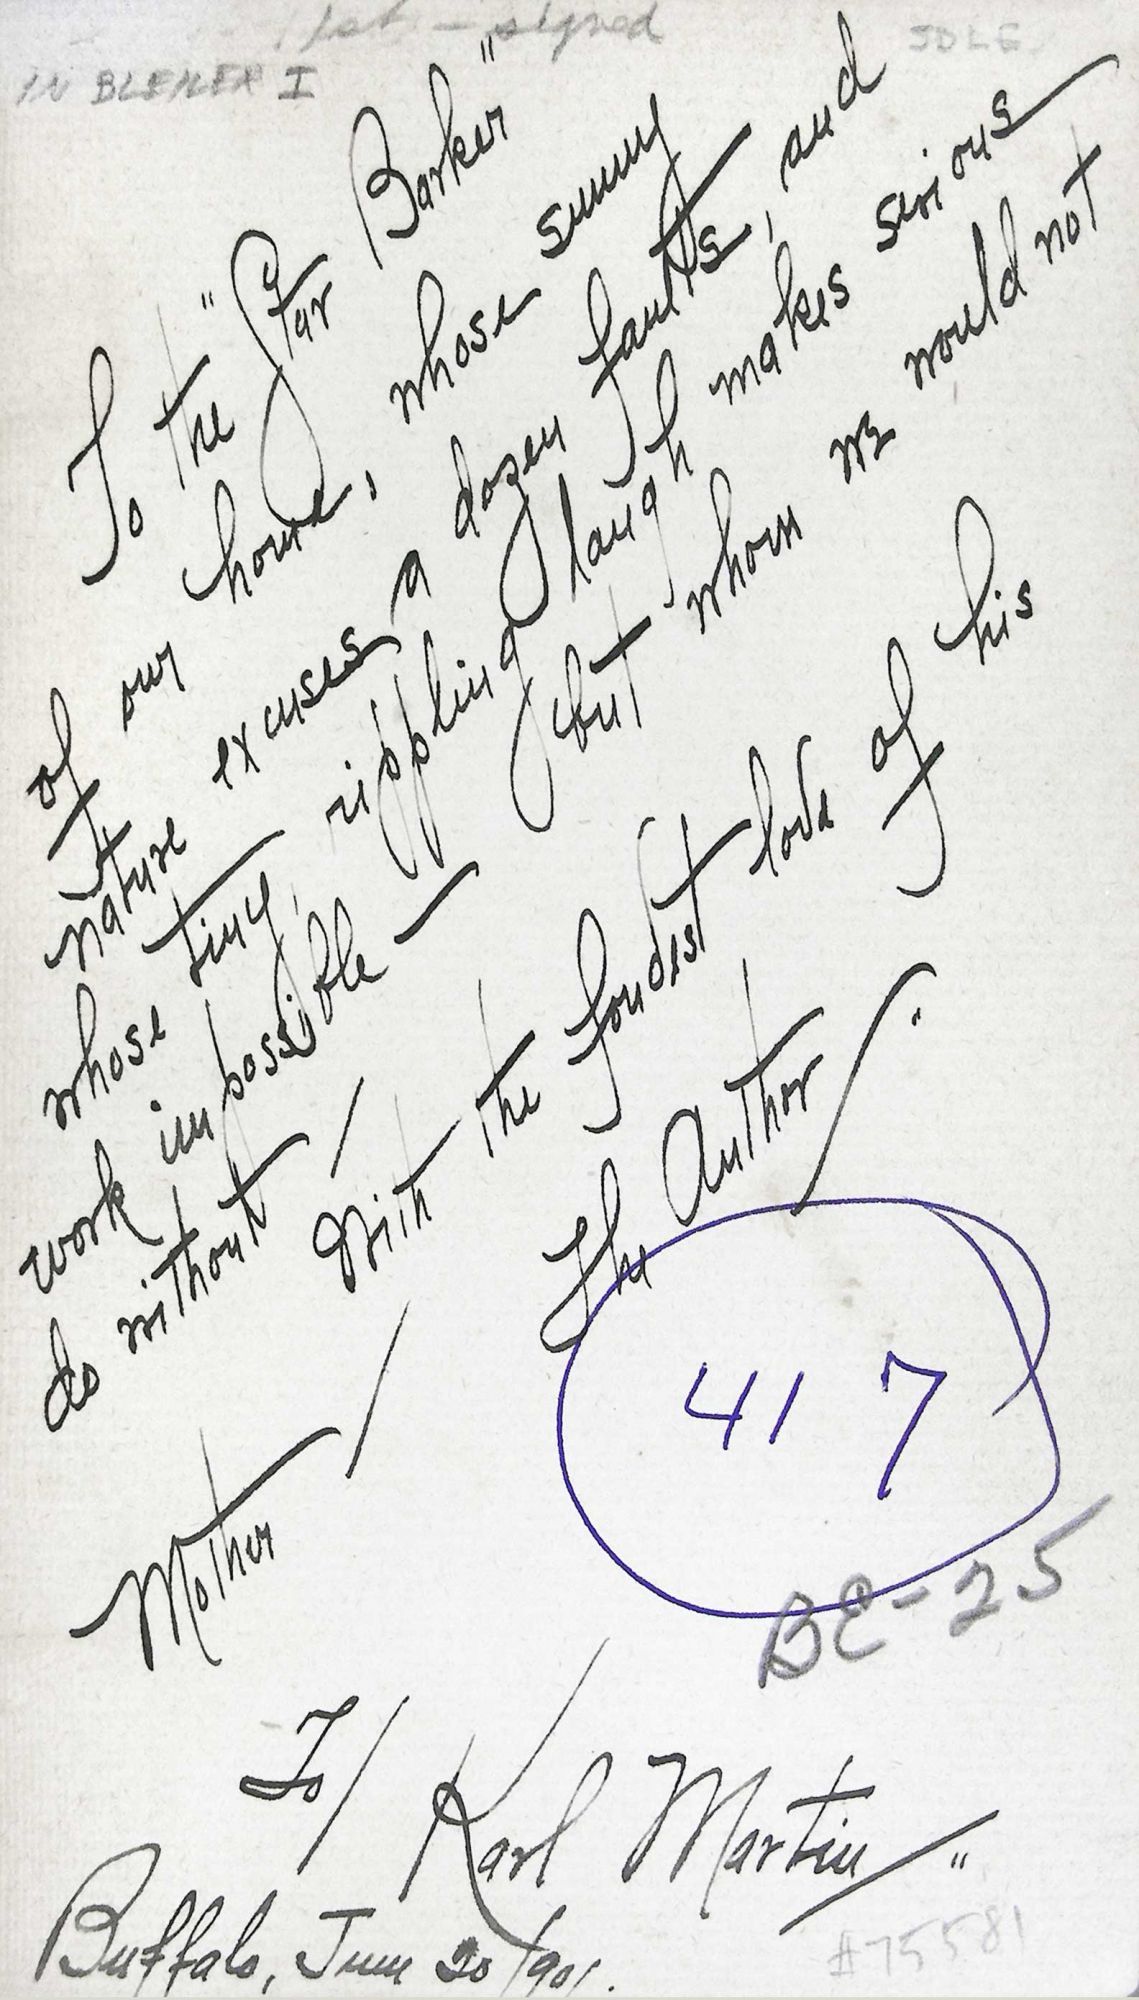 1st - signed
IN BLEILER I
To the "Star Barker"
of our house, whose sunny
nature excuses a dozen faults, and
whose tiny, rippling laugh makes serious
work impossible — but whom we would not
do without /
With the fondest love of his
Mother / The Author /."
417
BE-25
To / Karl Martin "
Buffalo, June 20 1901.
#75581